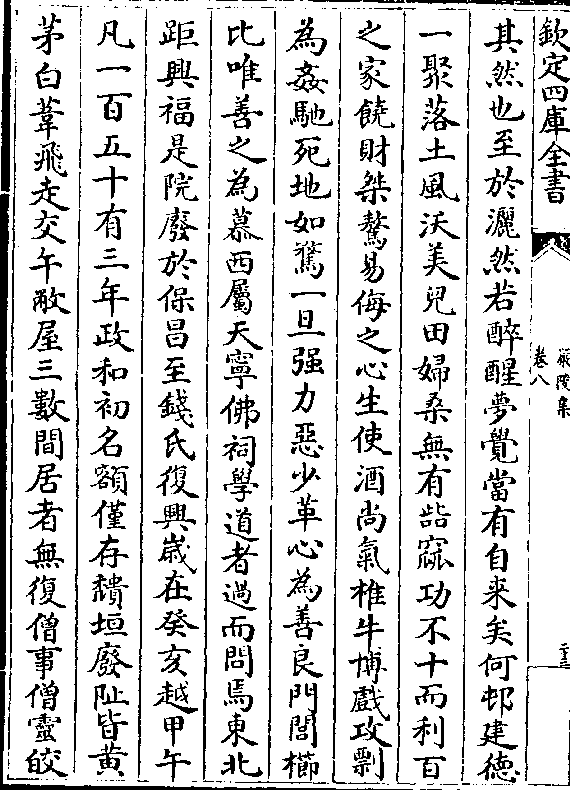 欽定四庫全書
嚴陵集
卷八
其然也至於灑然若醉醒夢覺當有自来矣何邨建德
一聚落土風沃美兒田婦桑無有呰窳功不十而利百
之家饒財桀驁易侮之心生使酒尚氣椎牛博戲攻剽
為姦馳死地如騖一旦强力惡少革心為善良門閭櫛
比唯善之為慕西屬天寧佛祠學道者過而問焉東北
距興福是院廢於保昌至錢氏復興嵗在癸亥越甲午
凡一百五十有三年政和初名額僅存頽垣廢阯皆黄
茅白葦飛走交午敝屋三數間居者無復僧事僧靈皎